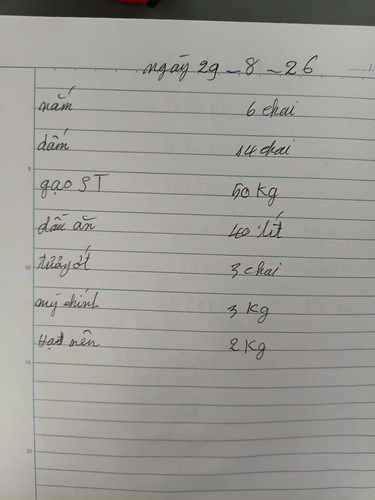 ngày 29-8-26
nấm 6 chai
dấm 14 chai
gạo ST 50 Kg
dầu ăn 40 lít
tương ớt 3 chai
mỳ chính 3 Kg
hạt nên 2 Kg